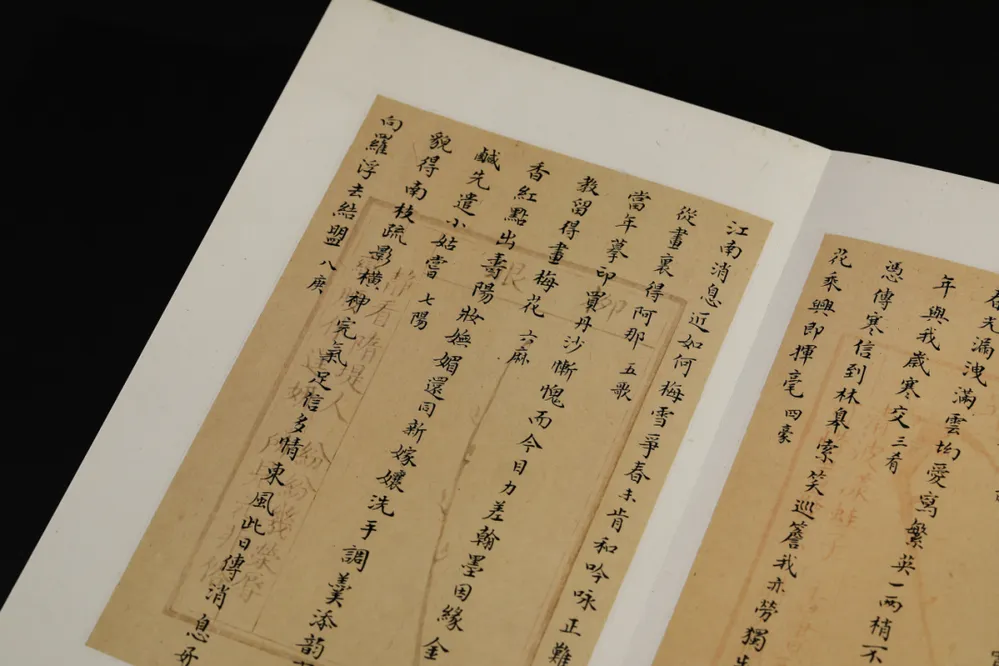 春光漏洩滿雲均愛寫繁英一兩梢不
年與我歲寒交 三肴
憑傳寒信到林皋索笑巡簷我亦勞獨
花乘興即揮毫 四豪
江南消息近如何梅雪爭春未肯和吟咏正難
從畫裏得阿那 五歌
當年摹印賣丹沙慚愧而今目力差翰墨因緣金
教留得畫梅花 六麻
香紅點出壽陽妝嫵媚還同新嫁孃洗手調羹添韻
鹹先遣小姑嘗 七陽
貌得南枝疏影橫神完氣足信多情東風此日傳消息好
向羅浮去結盟 八庚